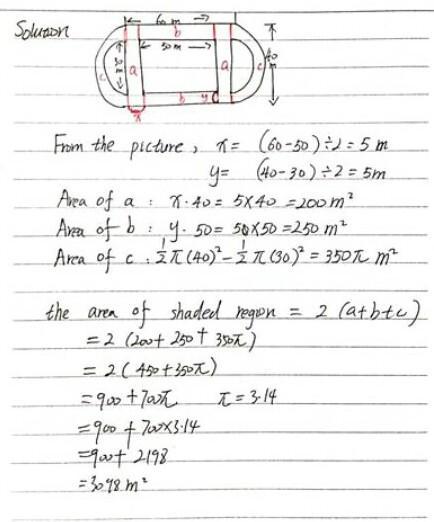 Solution
60 m
b
50 m
30m
a
a
c
c
40m
b
y
x
From the picture, x = (60-50)÷2 = 5 m
y= (40-30)÷2 = 5m
Area of a : x·40 = 5×40 =200 m²
Area of b : y·50 = 5×50 =250 m²
Area of c : ½π(40)² - ½π(30)² = 350π m²
the area of shaded region = 2 (a+b+c)
= 2 (200+ 250+ 350π)
= 2( 450+350π)
=900+700π π = 3.14
=900+700×3.14
=900+ 2198
=3098 m²